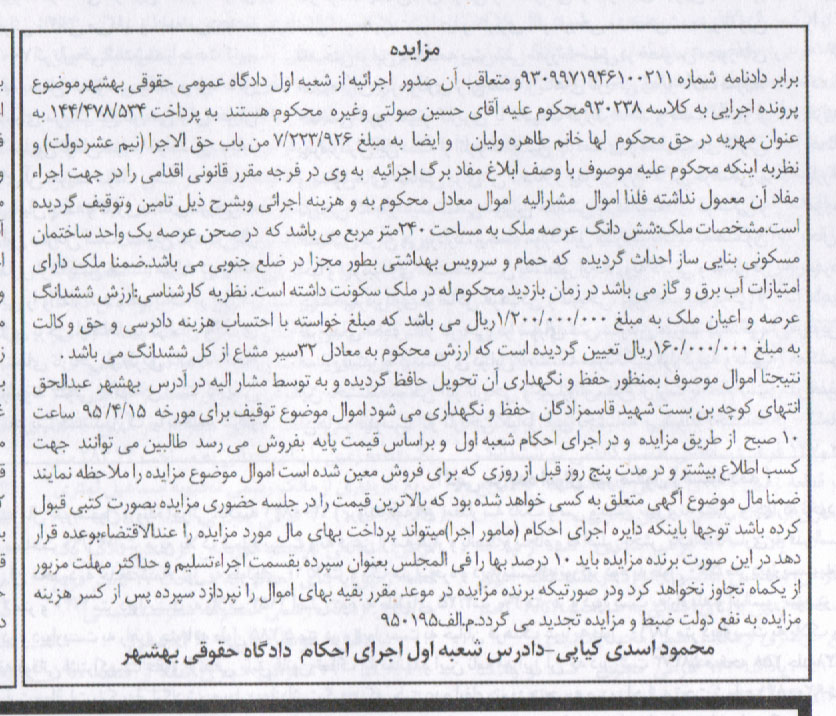 مزایده
برابر دادنامه شماره ۹۳۰۹۹۷۱۹۴۶۱۰۰۲۱۱ومتعاقب آن صدور اجرائیه از شعبه اول دادگاه عمومی حقوقی بهشهرموضوع
پرونده اجرایی به کلاسه ۹۳۰۲۳۸محکوم علیه آقای حسین صولتی وغیره محکوم هستند به پرداخت ۱۴۴/۴۷۸/۵۳۴ به
عنوان مهریه در حق محکوم لها خانم طاهره ولیان و ایضا به مبلغ ۷/۲۲۳/۹۲۶ من باب حق الاجرا (نیم عشردولت) و
نظربه اینکه محکوم علیه موصوف با وصف ابلاغ مفاد برگ اجرائیه به وی در فرجه مقرر قانونی اقدامی را در جهت اجراء
مفاد آن معمول نداشته فلذا اموال مشارالیه اموال معادل محکوم به و هزینه اجرائی وبشرح ذیل تامین وتوقیف گردیده
است.مشخصات ملک:شش دانگ عرصه ملک به مساحت ۲۴۰متر مربع می باشد که درصحن عرصه یک واحد ساختمان
مسکونی بنایی ساز احداث گردیده که حمام و سرویس بهداشتی بطور مجزا در ضلع جنوبی می باشدضمنا ملک دارای
امتیازات آب برق و گاز می باشد در زمان بازدید محکوم له در ملک سکونت داشته است.نظریه کارشناسی:ارزش ششدانگ
عرصه و اعیان ملک به مبلغ ۱/۲۰۰/۰۰۰/۰۰۰ریال می باشد که مبلغ خواسته با احتساب هزینه دادرسی و حق و کالت
مبلغ ۱۶۰/۰۰۰/۰۰۰ریال تعیین گردیده است که ارزش محکوم به معادل ۳۲سیر مشاع از کل ششدانگ می باشد .
نتیجتا اموال موصوف بمنظور حفظ و نگهداری آن تحویل حافظ گردیده و به توسط مشار الیه در آدرس بهشهر عبدالحق
انتهای کوچه بن بست شهید قاسمزادگان حفظ و نگهداری می شود اموال موضوع توقیف برای مورخه ۹۵/۴/۱۵ ساعت
۱۰ صبح از طریق مزایده و در اجرای احکام شعبه اول و براساس قیمت پایه بفروش می رسد طالبین می توانند جهت
کسب اطلاع بیشتر و در مدت پنج روز قبل از روزی که برای فروش معین شده است اموال موضوع مزایده را ملاحظه نمایند
ضمنا مال موضوع آگهی متعلق به کسی خواهد شد شد که بالاترین قیمت را در جلسه حضوری مزایده بصورت کتبی قبول
کرده باشد توجها باینکه دایره اجرای احکام (مامور اجرا)میتواند پرداخت بهای مال مورد مزایده را عندالاقتضابوعده قرار
دهد در این صورت برنده مزایده باید ۱۰ درصد بها را فی المجلس بعنوان سپرده بقسمت اجراءتسلیم و حداکثر مهلت مزبور
از یکماه تجاوز نخواهد کرد ودر صورتیکه برنده مزایده در موعد مقرر بقیه بهای اموال را نپردازد سپرده پس از کسر هزینه
مزایده به نفع دولت ضبط و مزایده تجدید می گردد.م.الف۹۵۰۱۹۵
محمود اسدی کیایی-دادرس شعبه اول اجرای احکام دادگاه حقوقی بهشهر